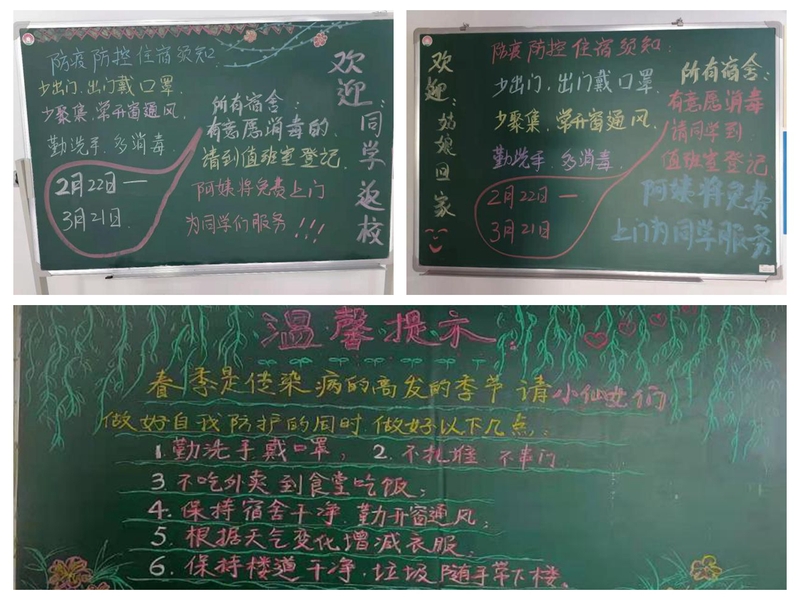 防疫防控住宿须知：
少出门、出门戴口罩
少聚集、常开窗通风
勤洗手、多消毒
2月22日—
3月21日
所有宿舍：
有意愿消毒的
请到值班室登记
阿姨将免费上门
为同学们服务！！！
欢迎同学返校
欢迎：姑娘回家
防疫防控住宿须知：
少出门、出门戴口罩
少聚集、常开窗通风
勤洗手、多消毒
2月22日—
3月21日
所有宿舍：
有意愿消毒
请同学到
值班室登记
阿姨将免费
上门为同学服务
温馨提示：
春季是传染病的高发的季节 请小仙女们
做好自我防护的同时，做好以下几点：
1.勤洗手戴口罩； 2.不扎堆 不串门
3.不吃外卖到食堂吃饭；
4.保持宿舍干净，勤开窗通风；
5.根据天气变化增减衣服；
6.保持楼道干净，垃圾随手带下楼。